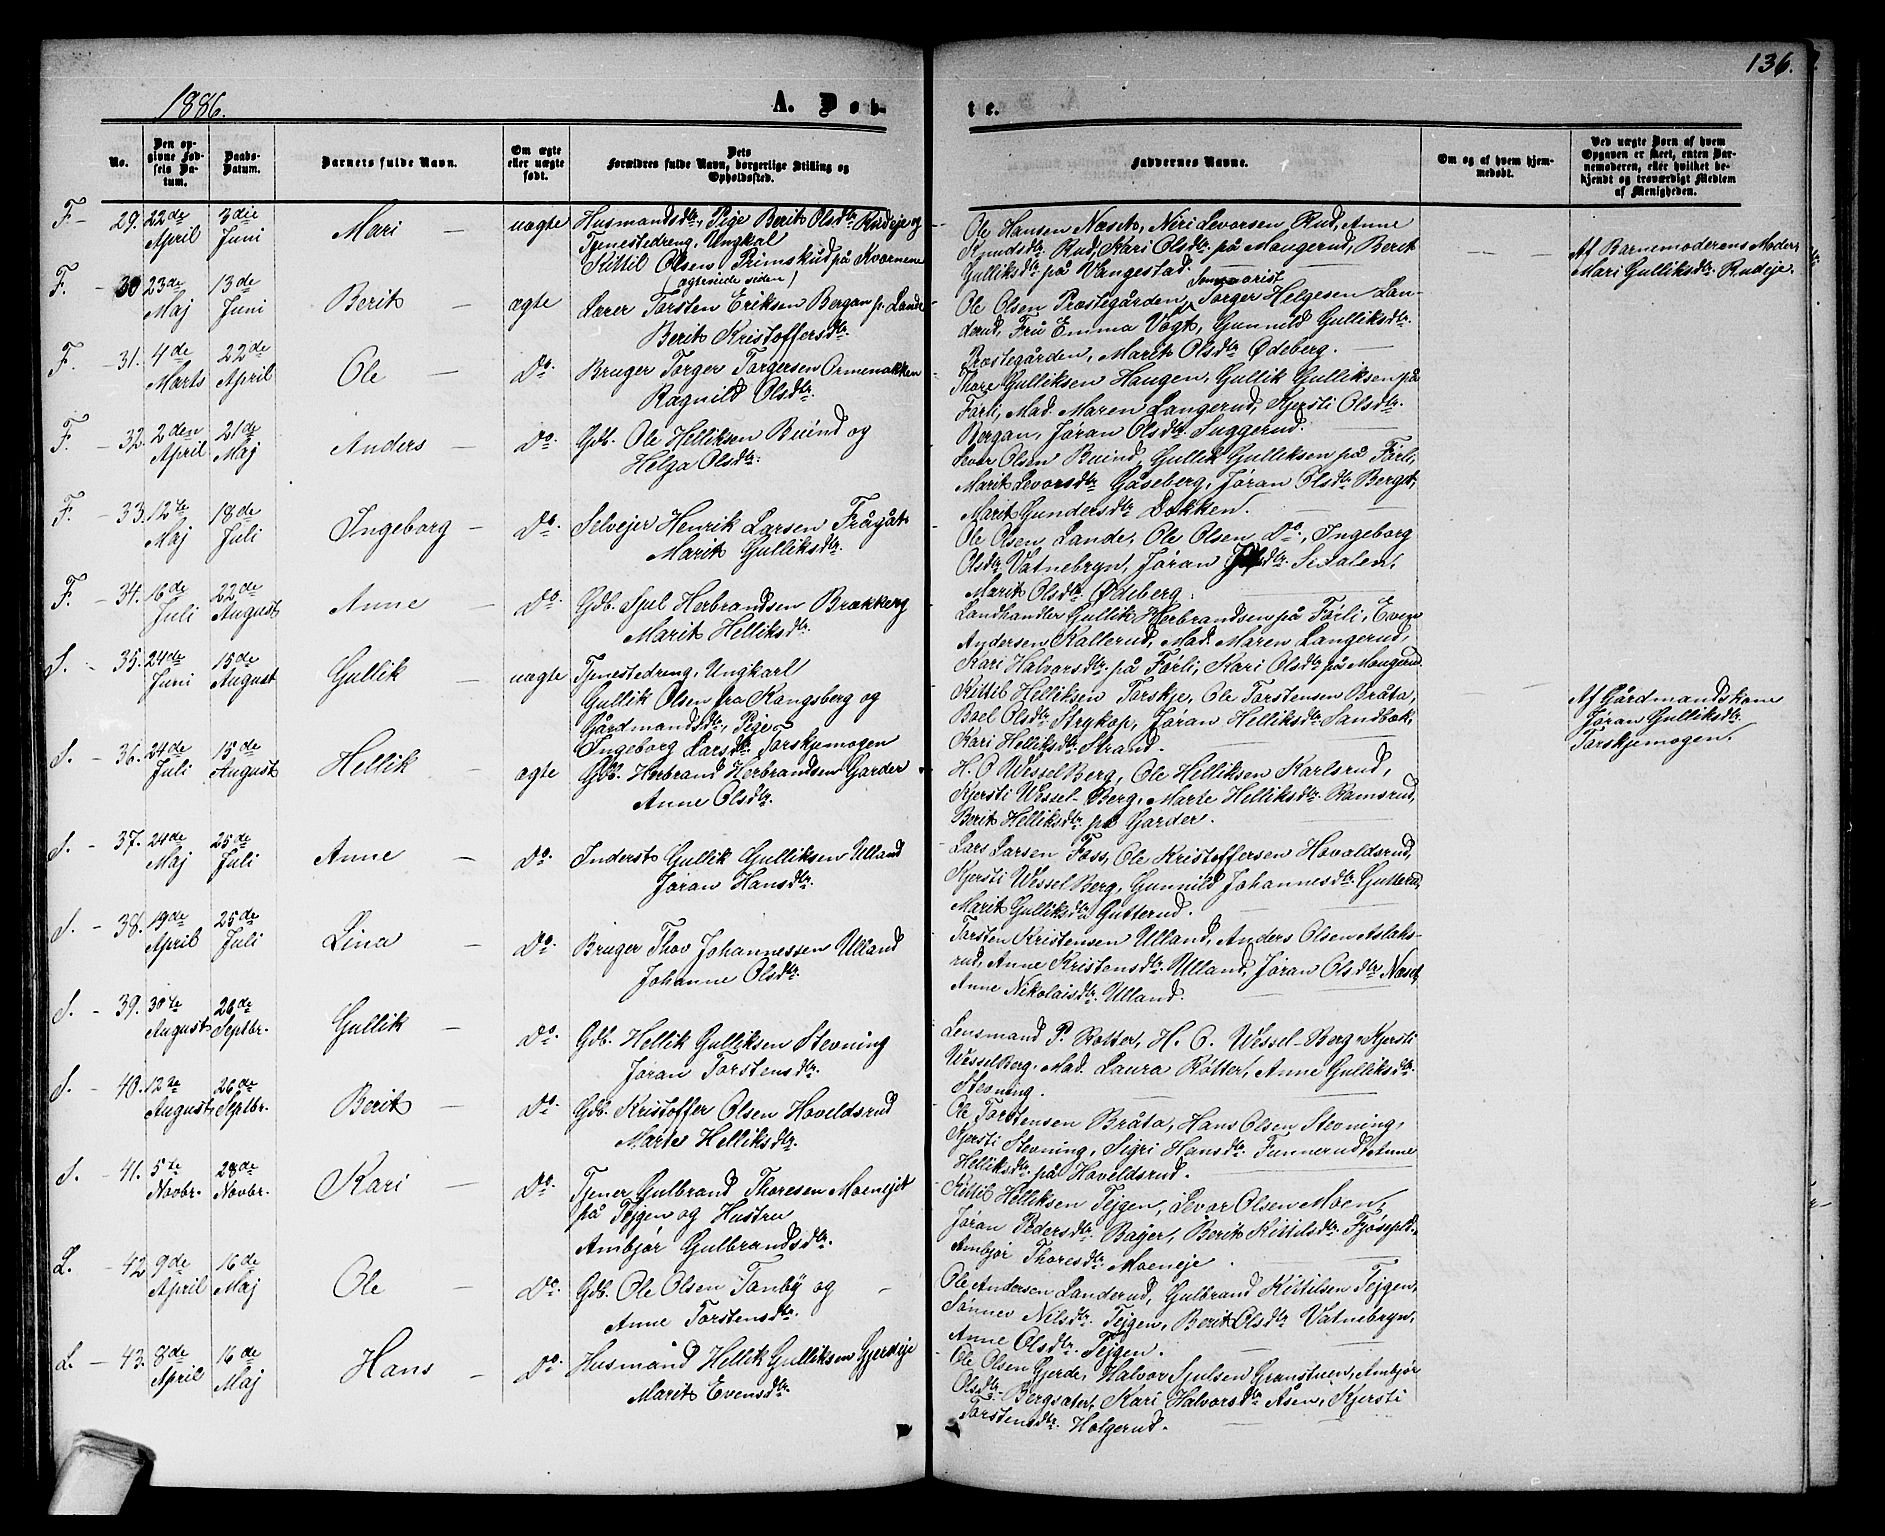 136.
1886.
A. Døb-
te.
No.
Den opgivne Fødsels Datum.
Daabs-Datum.
Barnets fulde Navn.
Om ægte eller uægte født.
Dets Forældres fulde Navn, borgerlige Stilling og Opholdssted.
Faddernes Navne.
Om og af hvem hjemmedøbt.
Ved uægte Børn af hvem Opgaven er skeet, enten Barnemoderen, eller hvilket bekjendt og troværdigt Medlem af Menigheden.
F. - 29. 22de April 3die Juni Mari - uægte
Husmandsdtr, Pige Berit Olsdtr Rudeje og
Tjenestedreng, Ungkal
Kittil Olsen Primskud på Kvornene
(ægteviede siden)
Ole Hansen Næset, Niri Levorsen Rud, Anne
Knudsdtr. Rud, Kari Olsdtr. på Maugerud, Berit
Gulliksdtr på Vangestad.
Af Barnemoderens Moder
Mari Gulliksdtr. Rudeje.
F. - 30 23de Maj 13de Juni Berit - ægte
Lærer Torsten Eriksen Bergan p. Lande
Berit Kristoffersdtr.
Ole Olsen Prostegården, Torger Helgesen Lan-
derud, Fru Emma Vogt, Gunnild Gulliksdtr.
Prostegården, Marit Olsdtr Ødeberg.
F. - 31. 4de Marts 22de April Ole - Do.
Bruger Torger Torgersen Ormenakken
Ragnild Olsdtr.
Thore Gulliksen Haugen, Gullik Gulliksen på
Førli, Mad. Maren Langerud, Kjersti Olsdtr.
Bergan, Jøran Olsdtr. Suggerud.
F. - 32. 2den April 21de Maj Anders - Do.
Gdb. Ole Helliksen Buind og
Helga Olsdtr.
Levor Olsen Buind, Gullik Gulliksen på Førli,
Marit Levorsdtr Gåseberg, Jøran Olsdtr Berget,
Marit Gundersdtr Løkken.
F. - 33. 12te Maj 18de Juli Ingeborg - Do.
Selvejer Henrik Larsen Frøgåt
Marit Gulliksdtr.
Ole Olsen Lande, Ole Olsen Do., Ingeborg
Olsdtr Vatnebryn, Jøran
Marit Olsdtr Ødeberg.
F. - 34. 16de Juli 22de August Anne - Do.
Gdb. Sjul Herbrandsen Brækkerg
Marit Helliksdtr.
Landhandler Gullik Herbrandsen på Førli, Even
Andersen Kallerud, Mad. Maren Langerud,
Kari Halvorsdtr. på Førli, Kari Olsdtr på Maugerud.
S. - 35. 24de Juni 15de August Gullik - uægte
Tjenestedreng, Ungkarl
Gullik Olsen fra Kongsberg og
Gårdmandsdtr., Pige
Ingeborg Larsdtr Torskjemogen
Kittil Helliksen Torskje, Ole Torstensen Bråta,
Boel Olsdtr Strykop, Jøran Helliksdtr. Sandbæk,
Kari Helliksdtr Strand.
Af Gårdmandskone
Jøran Gulliksdtr.
Torskjemogen.
S. - 36. 24de Juli 15de August Hellik - ægte
Gdb. Herbrand Herbrandsen Garder
Anne Olsdtr.
H. C. Wessel Berg, Ole Helliksen Karlsrud,
Kjersti Wessel-Berg, Marte Helliksdtr. Ramsrud,
Berit Helliksdtr. på Garder.
S. - 37. 24de Maj 25de Juli Anne - Do.
Inderst Gullik Gulliksen Ulland
Jøran Hansdtr.
Lars Larsen Foss, Ole Kristoffersen Hovaldsrud,
Kjersti Wessel Berg, Gunnild Johannesdtr. Gutterud,
Marit Gulliksdtr Gutterud.
S. - 38. 19de April 25de Juli Lina - Do.
Bruger Thov Johannessen Ulland
Johanne Olsdtr.
Torsten Kristensen Ulland, Anders Olsen Aslaks-
rud, Anne Kristensdtr. Ulland, Jøran Olsdtr Næset,
Anne Nikolaisdtr. Ulland.
S. - 39. 30te August 26de Septbr. Gullik - Do.
Gdb. Hellik Gulliksen Stevning
Jøran Torstensdtr.
Lensmand P. Rotter, H. C. Wessel-Berg, Kjersti
Wessel Berg, Mad. Laura Rotter, Anne Gulliksdtr.
Stevning.
S. - 40. 12te August 26de Septbr. Berit - Do.
Gdb. Kristoffer Olsen Hoveldsrud
Marte Helliksdtr.
Ole Torstensen Bråta, Hans Olsen Stevning,
Kjersti Stevning, Sigri Hansdtr. Funnerud, Anne
Helliksdtr. på Hoveldsrud.
S. - 41. 5te Novbr. 28de Novbr. Kari - Do.
Tjener Gulbrand Thoresen Moenejet
på Tejgen og Hustru
Ambjør Gulbrandsdtr.
Kittil Helliksen Tejgen, Levor Olsen Moen,
Jøran Pedersdtr. Bøjer, Berit Kittilsdtr.
Ambjør Thoresdtr. Moeneje.
L. - 42 9de April 16de Maj Ole - Do.
Gdb. Ole Olsen Tonby og
Anne Torstensdtr.
Ole Andersen Landerud, Gulbrand Kittilsen Tejgen,
Sønnev Nilsdtr. Tejgen, Berit Olsdtr Vatnebryn,
Anne Olsdtr. Tejgen.
L. - 43. 8de April 16de Maj Hans - Do.
Husmand Hellik Gulliksen Gjerdeje
Marit Evensdtr.
Ole Olsen Gjerde, Halvor Sjulsen Granstuen, Ambjør
Olsdtr. Bergsætet, Kari Halvorsdtr Åsen, Kjersti
Torstensdtr. Holgerud.